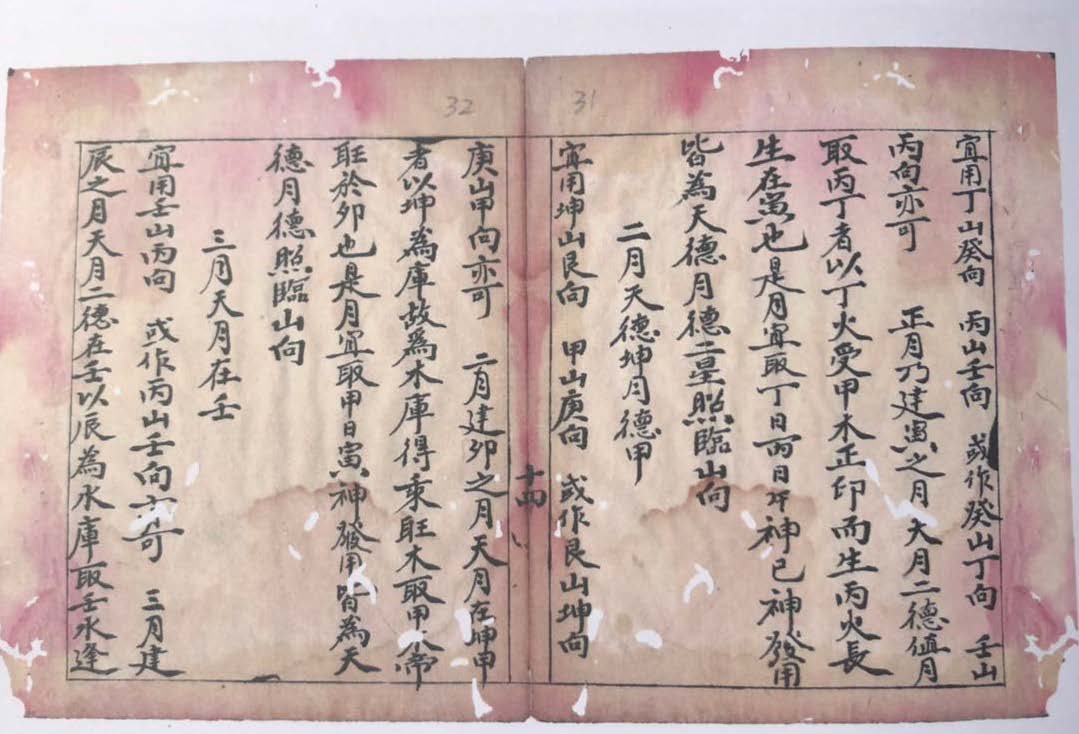 31
宜用丁山癸向　丙山壬向　或作癸山丁向　壬山
丙向亦可　正月乃建寅之月　天月二德值月
取丙丁者以丁火受甲木正印而生丙火長
生在寅也是月宜取丁日丙日午神巳神發用
皆為天德月德二星照臨山向
二月天德坤月德甲
宜用坤山艮向　甲山庚向　或作艮山坤向
十四
32
庚山甲向亦可　二月建卯之月天月在坤甲
者以坤為庫故為木庫得乘旺木取甲木帝
旺於卯也是月宜取甲日寅神發用皆為天
德月德照臨山向
三月天月在壬
宜用壬山丙向　或作丙山壬向亦可　三月建
辰之月天月二德在壬以辰為水庫取壬水逢